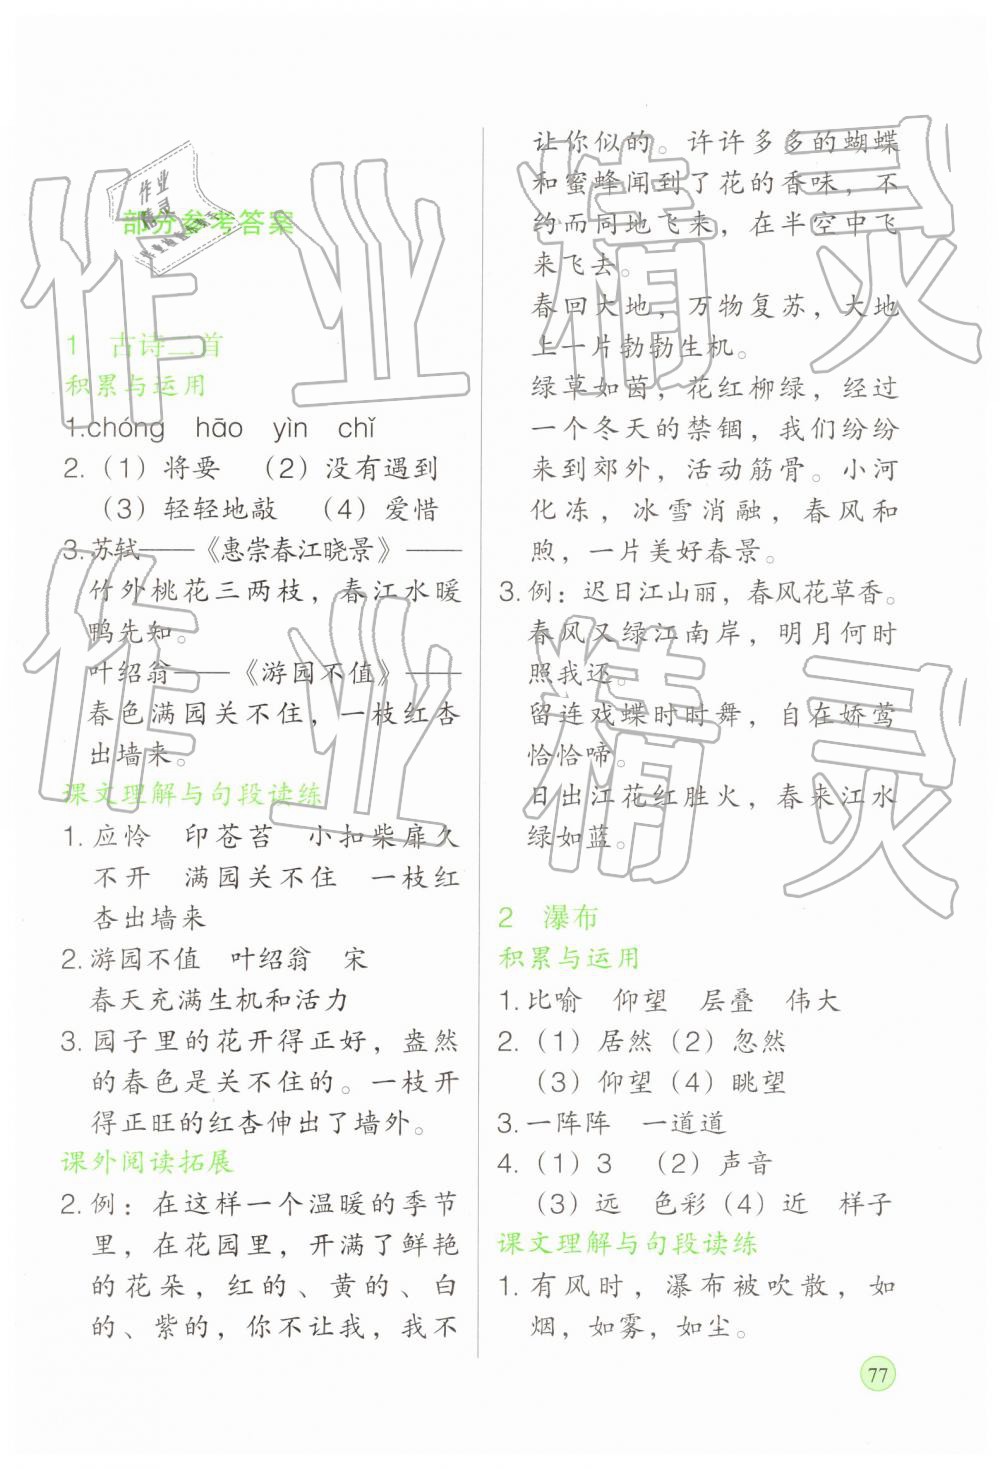 部分参考答案
1 古诗二首
积累与运用
1.chóng hāo yìn chǐ
2.（1）将要 （2）没有遇到
（3）轻轻地敲 （4）爱惜
3.苏轼——《惠崇春江晓景》——
竹外桃花三两枝，春江水暖
鸭先知。
叶绍翁——《游园不值》——
春色满园关不住，一枝红杏
出墙来。
课文理解与句段读练
1.应怜 印苍苔 小扣柴扉久
不开 满园关不住 一枝红
杏出墙来
2.游园不值 叶绍翁 宋
春天充满生机和活力
3.园子里的花开得正好，盎然
的春色是关不住的。一枝开
得正旺的红杏伸出了墙外。
课外阅读拓展
2.例：在这样一个温暖的季节
里，在花园里，开满了鲜艳
的花朵，红的、黄的、白
的、紫的，你不让我，我不
让你似的。许许多多的蝴蝶
和蜜蜂闻到了花的香味，不
约而同地飞来，在半空中飞
来飞去。
春回大地，万物复苏，大地
上一片勃勃生机。
绿草如茵，花红柳绿，经过
一个冬天的禁锢，我们纷纷
来到郊外，活动筋骨。小河
化冻，冰雪消融，春风和
煦，一片美好春景。
3.例：迟日江山丽，春风花草香。
春风又绿江南岸，明月何时
照我还。
留连戏蝶时时舞，自在娇莺
恰恰啼。
日出江花红胜火，春来江水
绿如蓝。
2 瀑布
积累与运用
1.比喻 仰望 层叠 伟大
2.（1）居然（2）忽然
（3）仰望（4）眺望
3.一阵阵 一道道
4.（1）3 （2）声音
（3）远 色彩（4）近 样子
课文理解与句段读练
1.有风时，瀑布被吹散，如
烟，如雾，如尘。
77
作业精灵
作业精灵
作业
精灵